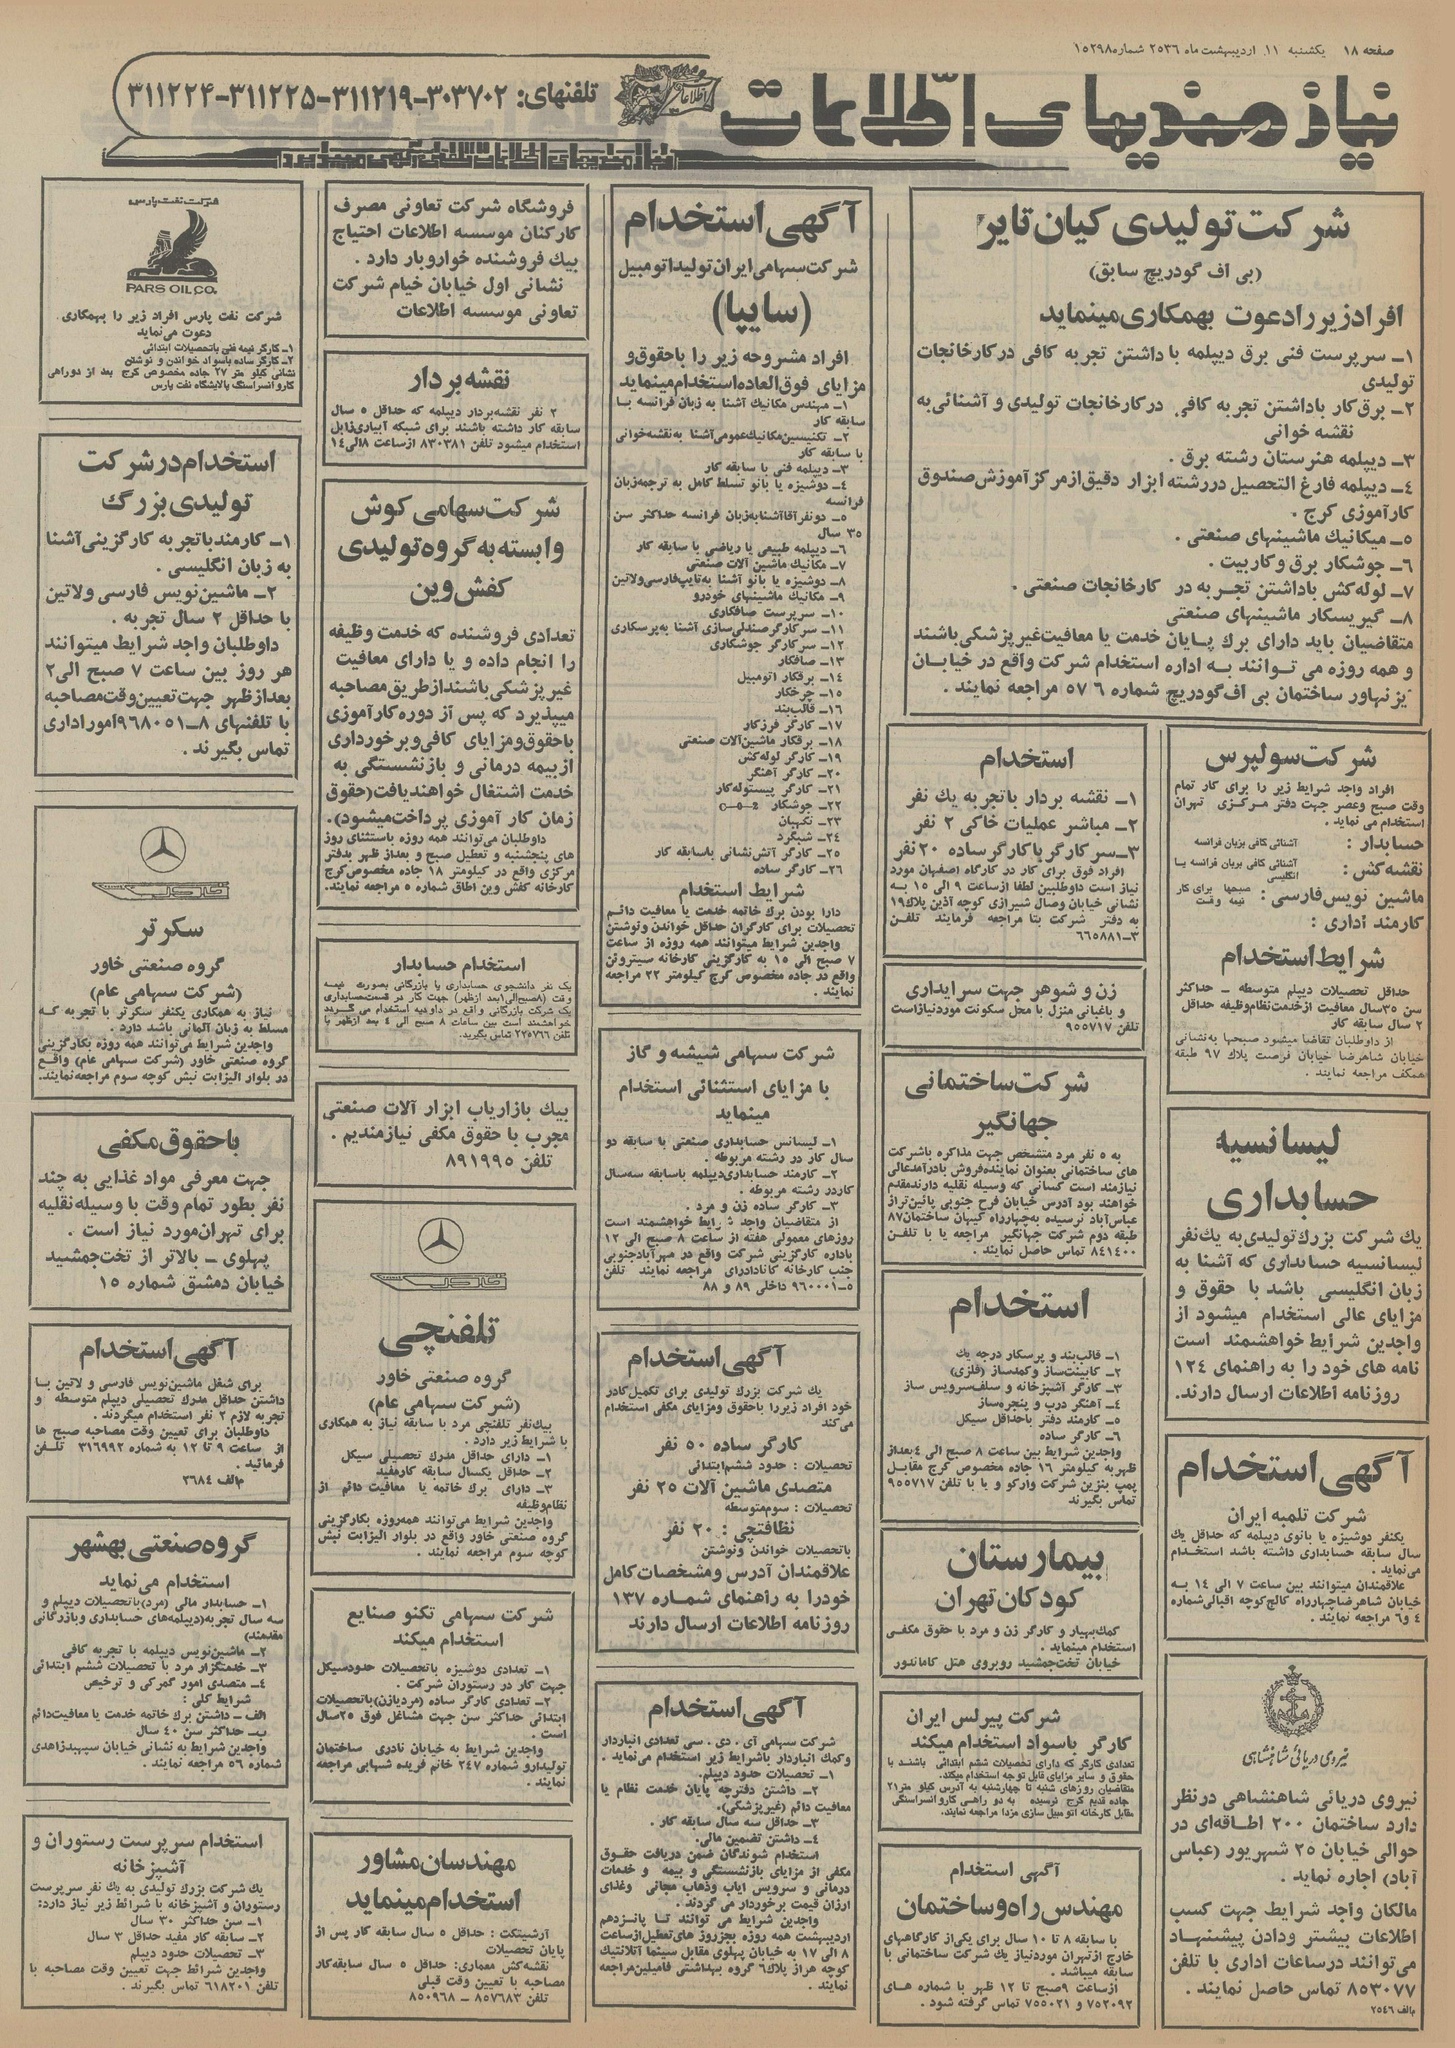 صفحه ۱۸ یکشنبه ۱۱ اردیبهشت ماه ۲۵۳۶ شماره ۱۵۲۹۸
نیازمندیهای اطلاعات
تلفنهای: ۳۰۳۷۰۲-۳۱۱۲۱۹-۳۱۱۲۲۵-۳۱۱۲۲۴
نیازمندیهای اطلاعات تلفنی آگهی میپذیرد
شرکت تولیدی کیان تایر
(بی اف گودریچ سابق)
افراد زیر را دعوت بهمکاری مینماید
۱ــ سرپرست فنی برق دیپلمه با داشتن تجربه کافی در کارخانجات
تولیدی
۲ــ برق کار باداشتن تجربه کافی در کارخانجات تولیدی و آشنائی به
نقشه خوانی
۳ــ دیپلمه هنرستان رشته برق .
۴ــ دیپلمه فارغ التحصیل در رشته ابزار دقیق از مرکز آموزش صندوق
کارآموزی کرج .
۵ــ میکانیک ماشینهای صنعتی .
۶ــ جوشکار برق و کاربیت .
۷ــ لوله کش باداشتن تجربه در کارخانجات صنعتی .
۸ــ گیریسکار ماشینهای صنعتی
متقاضیان باید دارای برگ پایان خدمت یا معافیت غیرپزشکی باشند
و همه روزه می توانند به اداره استخدام شرکت واقع در خیابان
یزنهاور ساختمان بی اف گودریچ شماره ۵۷۶ مراجعه نمایند .
شرکت سولپرس
افراد واجد شرایط زیر را برای کار تمام
وقت صبح وعصر جهت دفتر مرکزی تهران
استخدام می نماید .
حسابدار : آشنائی کافی بزبان فرانسه
نقشه کش : آشنائی کافی بزبان فرانسه یا
انگلیسی
ماشین نویس فارسی : صبحها برای کار
نیمه وقت
کارمند اداری :
شرایط استخدام
حداقل تحصیلات دیپلم متوسطه ــ حداکثر
سن ۳۵ سال معافیت از خدمت نظام وظیفه حداقل
۲ سال سابقه کار
از داوطلبان تقاضا میشود صبحها به نشانی
خیابان شاهرضا خیابان فرصت پلاک ۹۷ طبقه
همکف مراجعه نمایند .
لیسانسیه
حسابداری
یک شرکت بزرگ تولیدی به یک نفر
لیسانسیه حسابداری که آشنا به
زبان انگلیسی باشد با حقوق و
مزایای عالی استخدام میشود از
واجدین شرایط خواهشمند است
نامه های خود را به راهنمای ۱۲۴
روزنامه اطلاعات ارسال دارند.
آگهی استخدام
شرکت تلمبه ایران
یکنفر دوشیزه یا بانوی دیپلمه که حداقل یک
سال سابقه حسابداری داشته باشد استخدام
می نماید .
علاقمندان میتوانند بین ساعت ۷ الی ۱۴ به
خیابان شاهرضا چهارراه کالج کوچه اقبالی شماره
۴ و ۶ مراجعه نمایند .
نیروی دریائی شاهنشاهی
نیروی دریائی شاهنشاهی در نظر
دارد ساختمان ۲۰۰ اطاقه ای در
حوالی خیابان ۲۵ شهریور (عباس
آباد) اجاره نماید .
مالکان واجد شرایط جهت کسب
اطلاعات بیشتر ودادن پیشنهاد
می توانند در ساعات اداری با تلفن
۸۵۳۰۷۷ تماس حاصل نمایند .
م الف ۲۵۴۶
استخدام
۱ــ نقشه بردار باتجربه یک نفر
۲ــ مباشر عملیات خاکی ۲ نفر
۳ــ سر کارگر یا کارگر ساده ۲۰ نفر
افراد فوق برای کار در کارگاه اصفهان مورد
نیاز است داوطلبین لطفا از ساعت ۹ الی ۱۵ به
نشانی خیابان وصال شیرازی کوچه آذین پلاک ۱۹
به دفتر شرکت بتا مراجعه فرمایند تلفن
۳ــ۶۶۵۸۸۱
زن و شوهر جهت سرایداری
و باغبانی منزل با محل سکونت موردنیاز است
تلفن ۹۵۵۷۱۷
شرکت ساختمانی
جهانگیر
به ۵ نفر مرد متشخص جهت مذاکره باشرکت
های ساختمانی بعنوان نماینده فروش بادرآمد عالی
نیازمند است کسانی که وسیله نقلیه دارند مقدم
خواهند بود آدرس خیابان فرح جنوبی پائین تر از
عباس آباد نرسیده به چهارراه کیهان ساختمان ۸۷
طبقه دوم شرکت جهانگیر مراجعه یا با تلفن
۸۴۱۴۰۰ تماس حاصل نمایند .
استخدام
۱ــ قالب بند و پرسکار درجه یک
۲ــ کابینت ساز و کمدساز (فلزی)
۳ــ کارگر آشپزخانه و سلف سرویس ساز
۴ــ آهنگر درب و پنجره ساز
۵ــ کارمند دفتر باحداقل سیکل
۶ــ کارگر ساده
واجدین شرایط بین ساعت ۸ صبح الی ۴ بعداز
ظهر به کیلومتر ۱۶ جاده مخصوص کرج مقابل
پمپ بنزین شرکت وارکو و یا با تلفن ۹۵۵۷۱۷
تماس بگیرند
بیمارستان
کودکان تهران
کمک بهیار و کارگر زن و مرد با حقوق مکفی
استخدام مینماید .
خیابان تخت جمشید روبروی هتل کاماندور
شرکت پیرلس ایران
کارگر باسواد استخدام میکند
تعدادی کارگر که دارای تحصیلات ششم ابتدائی باشند با
حقوق و سایر مزایای قابل توجه استخدام میکند.
متقاضیان روزهای شنبه تا چهارشنبه به آدرس کیلو متر ۲۱
جاده قدیم کرج نرسیده به دو راهی کاروانسراسنگی
مقابل کارخانه اتومبیل سازی مزدا مراجعه نمایند.
آگهی استخدام
مهندس راه و ساختمان
با سابقه ۸ تا ۱۰ سال برای یکی از کارگاههای
خارج از تهران موردنیاز یک شرکت ساختمانی با
سابقه میباشد .
از ساعت ۹ صبح تا ۱۲ ظهر با شماره های
۷۵۲۰۹۲ و ۷۵۵۰۲۱ تماس گرفته شود .
آگهی استخدام
شرکت سهامی ایران تولید اتومبیل
(سایپا)
افراد مشروحه زیر را باحقوق و
مزایای فوق العاده استخدام مینماید
۱ــ مهندس مکانیک آشنا به زبان فرانسه با
سابقه کار
۲ــ تکنیسین مکانیک عمومی آشنا به نقشه خوانی
با سابقه کار
۳ــ دیپلمه فنی با سابقه کار
۴ــ دوشیزه یا بانو تسلط کامل به ترجمه زبان
فرانسه
۵ــ دونفر آقا آشنا به زبان فرانسه حداکثر سن
۳۵ سال
۶ــ دیپلمه طبیعی یا ریاضی با سابقه کار
۷ــ مکانیک ماشین آلات صنعتی
۸ــ دوشیزه یا بانو آشنا به تایپ فارسی ولاتین
۹ــ مکانیک ماشینهای خودرو
۱۰ــ سرپرست صافکاری
۱۱ــ سرکارگر صندلی سازی آشنا به پرسکاری
۱۲ــ سرکارگر جوشکاری
۱۳ــ صافکار
۱۴ــ برقکار اتومبیل
۱۵ــ چرخکار
۱۶ــ قالب بند
۱۷ــ کارگر فرزکار
۱۸ــ برقکار ماشین آلات صنعتی
۱۹ــ کارگر لوله کش
۲۰ــ کارگر آهنگر
۲۱ــ کارگر پیستوله کار
۲۲ــ جوشکار C-O-2
۲۳ــ نگهبان
۲۴ــ شبگرد
۲۵ــ کارگر آتش نشانی باسابقه کار
۲۶ــ کارگر ساده
شرایط استخدام
دارا بودن برگ خاتمه خدمت یا معافیت دائم
تحصیلات برای کارگران حداقل خواندن ونوشتن
واجدین شرایط میتوانند همه روزه از ساعت
۷ صبح الی ۱۵ به کارگزینی کارخانه سیتروئن
واقع در جاده مخصوص کرج کیلومتر ۲۲ مراجعه
نمایند .
شرکت سهامی شیشه و گاز
با مزایای استثنائی استخدام
مینماید
۱ــ لیسانس حسابداری صنعتی با سابقه دو
سال کار در رشته مربوطه .
۲ــ کارمند حسابداری دیپلمه باسابقه سه سال
کاردر رشته مربوطه .
۳ــ کارگر ساده زن و مرد .
از متقاضیان واجد شرایط خواهشمند است
روزهای معمولی هفته از ساعت ۸ صبح الی ۱۲
باداره کارگزینی شرکت واقع در مهرآبادجنوبی
جنب کارخانه کانادادرای مراجعه نمایند تلفن
۵ــ۹۶۰۰۰۱ داخلی ۸۹ و ۸۸
آگهی استخدام
یک شرکت بزرگ تولیدی برای تکمیل کادر
خود افراد زیر را باحقوق ومزایای مکفی استخدام
می کند
کارگر ساده ۵۰ نفر
تحصیلات : حدود ششم ابتدائی
متصدی ماشین آلات ۲۵ نفر
تحصیلات : سوم متوسطه
نظافتچی : ۲۰ نفر
باتحصیلات خواندن ونوشتن
علاقمندان آدرس ومشخصات کامل
خودرا به راهنمای شماره ۱۳۷
روزنامه اطلاعات ارسال دارند
آگهی استخدام
شرکت سهامی آی . دی . سی تعدادی انباردار
وکمک انباردار باشرایط زیر استخدام می نماید .
۱ــ تحصیلات حدود دیپلم.
۲ــ داشتن دفترچه پایان خدمت نظام یا
معافیت دائم (غیرپزشکی).
۳ــ حداقل سه سال سابقه کار .
۴ــ داشتن تضمین مالی.
استخدام شوندگان ضمن دریافت حقوق
مکفی از مزایای بازنشستگی و بیمه و خدمات
درمانی و سرویس ایاب وذهاب مجانی وغذای
ارزان قیمت برخوردار می گردند .
واجدین شرایط می توانند تا پانزدهم
اردیبهشت همه روزه بجز روز های تعطیل از ساعت
۸ الی ۱۷ به خیابان پهلوی مقابل سینما آتلانتیک
کوچه هراز پلاک ۶ گروه بهداشتی فامیلین مراجعه
نمایند .
فروشگاه شرکت تعاونی مصرف
کارکنان موسسه اطلاعات احتیاج
بیک فروشنده خواروبار دارد .
نشانی اول خیابان خیام شرکت
تعاونی موسسه اطلاعات
نقشه بردار
۲ نفر نقشه بردار دیپلمه که حداقل ۵ سال
سابقه کار داشته باشند برای شبکه آبیاری زابل
استخدام میشود تلفن ۸۳۰۳۸۱ از ساعت ۸ الی ۱۴
شرکت سهامی کوش
وابسته به گروه تولیدی
کفش وین
تعدادی فروشنده که خدمت وظیفه
را انجام داده و یا دارای معافیت
غیرپزشکی باشند از طریق مصاحبه
میپذیرد که پس از دوره کارآموزی
باحقوق و مزایای کافی و برخورداری
از بیمه درمانی و بازنشستگی به
خدمت اشتغال خواهند یافت (حقوق
زمان کار آموزی پرداخت میشود).
داوطلبان می توانند همه روزه باستثنای روز
های پنجشنبه و تعطیل صبح و بعداز ظهر بدفتر
مرکزی واقع در کیلومتر ۱۸ جاده مخصوص کرج
کارخانه کفش وین اطاق شماره ۵ مراجعه نمایند.
استخدام حسابدار
یک نفر دانشجوی حسابداری یا بازرگانی بصورت نیمه
وقت (۸صبح الی ۱ بعد ازظهر) جهت کار در قسمت حسابداری
یک شرکت بازرگانی واقع در داودیه استخدام می گردد
خواهشمند است بین ساعات ۸ صبح الی ۴ بعد ازظهر با
تلفن ۲۲۵۷۶۶ تماس بگیرید.
بیک بازاریاب ابزار آلات صنعتی
مجرب با حقوق مکفی نیازمندیم .
تلفن ۸۹۱۹۹۵
خاور
تلفنچی
گروه صنعتی خاور
(شرکت سهامی عام)
بیک نفر تلفنچی مرد با سابقه نیاز به همکاری
با شرایط زیر دارد .
۱ــ دارای حداقل مدرک تحصیلی سیکل
۲ــ حداقل یکسال سابقه کار مفید
۳ــ دارای برگ خاتمه یا معافیت دائم از
نظام وظیفه
واجدین شرایط می توانند همه روزه بکارگزینی
گروه صنعتی خاور واقع در بلوار الیزابت نبش
کوچه سوم مراجعه نمایند .
شرکت سهامی تکنو صنایع
استخدام میکند
۱ــ تعدادی دوشیزه باتحصیلات حدود سیکل
جهت کار در رستوران شرکت .
۲ــ تعدادی کارگر ساده (مردیازن) باتحصیلات
ابتدائی حداکثر سن جهت مشاغل فوق ۲۵ سال
است .
واجدین شرایط به خیابان نادری ساختمان
تولیدارو شماره ۲۴۷ خانم فریده شهابی مراجعه
نمایند .
مهندسان مشاور
استخدام مینماید
آرشیتکت : حداقل ۵ سال سابقه کار پس از
پایان تحصیلات
نقشه کش معماری: حداقل ۵ سال سابقه کار
مصاحبه با تعیین وقت قبلی
تلفن ۸۵۷۶۸۳ ــ ۸۵۰۹۶۸
شرکت نفت پارس
PARS OIL CO.
شرکت نفت پارس افراد زیر را بهمکاری
دعوت می نماید
۱ــ کارگر نیمه فنی باتحصیلات ابتدائی
۲ــ کارگر ساده باسواد خواندن و نوشتن
نشانی کیلو متر ۲۷ جاده مخصوص کرج بعد از دوراهی
کاروانسراسنگ پالایشگاه نفت پارس
استخدام در شرکت
تولیدی بزرگ
۱ــ کارمند باتجربه کارگزینی آشنا
به زبان انگلیسی .
۲ــ ماشین نویس فارسی ولاتین
با حداقل ۲ سال تجربه .
داوطلبان واجد شرایط میتوانند
هر روز بین ساعت ۷ صبح الی ۲
بعداز ظهر جهت تعیین وقت مصاحبه
با تلفنهای ۸ــ۹۶۸۰۵۱ امور اداری
تماس بگیرند .
خاور
سکرتر
گروه صنعتی خاور
(شرکت سهامی عام)
نیاز به همکاری یکنفر سکرتر با تجربه که
مسلط به زبان آلمانی باشد دارد .
واجدین شرایط می توانند همه روزه بکارگزینی
گروه صنعتی خاور (شرکت سهامی عام) واقع
در بلوار الیزابت نبش کوچه سوم مراجعه نمایند.
باحقوق مکفی
جهت معرفی مواد غذایی به چند
نفر بطور تمام وقت با وسیله نقلیه
برای تهران مورد نیاز است .
پهلوی ــ بالاتر از تخت جمشید
خیابان دمشق شماره ۱۵
آگهی استخدام
برای شغل ماشین نویس فارسی و لاتین با
داشتن حداقل مدرک تحصیلی دیپلم متوسطه و
تجربه لازم ۲ نفر استخدام میگردند .
داوطلبان برای تعیین وقت مصاحبه صبح ها
از ساعت ۹ تا ۱۲ به شماره ۳۱۶۹۹۲ تلفن
فرمائید .
م الف ۲۶۸۴
گروه صنعتی بهشهر
استخدام می نماید
۱ــ حسابدار مالی (مرد) باتحصیلات دیپلم و
سه سال تجربه (دیپلمه های حسابداری وبازرگانی
مقدمند)
۲ــ ماشین نویس دیپلمه با تجربه کافی
۳ــ خدمتگزار مرد با تحصیلات ششم ابتدائی
۴ــ متصدی امور گمرکی و ترخیص
شرایط کلی :
الف ــ داشتن برگ خاتمه خدمت یا معافیت دائم
ب ــ حداکثر سن ۴۰ سال
واجدین شرایط به نشانی خیابان سپهبد زاهدی
شماره ۵۶ مراجعه نمایند .
استخدام سرپرست رستوران و
آشپزخانه
یک شرکت بزرگ تولیدی به یک نفر سرپرست
رستوران و آشپزخانه با شرائط زیر نیاز دارد:
۱ــ سن حداکثر ۳۰ سال
۲ــ سابقه کار مفید حداقل ۳ سال
۳ــ تحصیلات حدود دیپلم
واجدین شرائط جهت تعیین وقت مصاحبه با
تلفن ۶۱۸۲۰۱ تماس بگیرند .